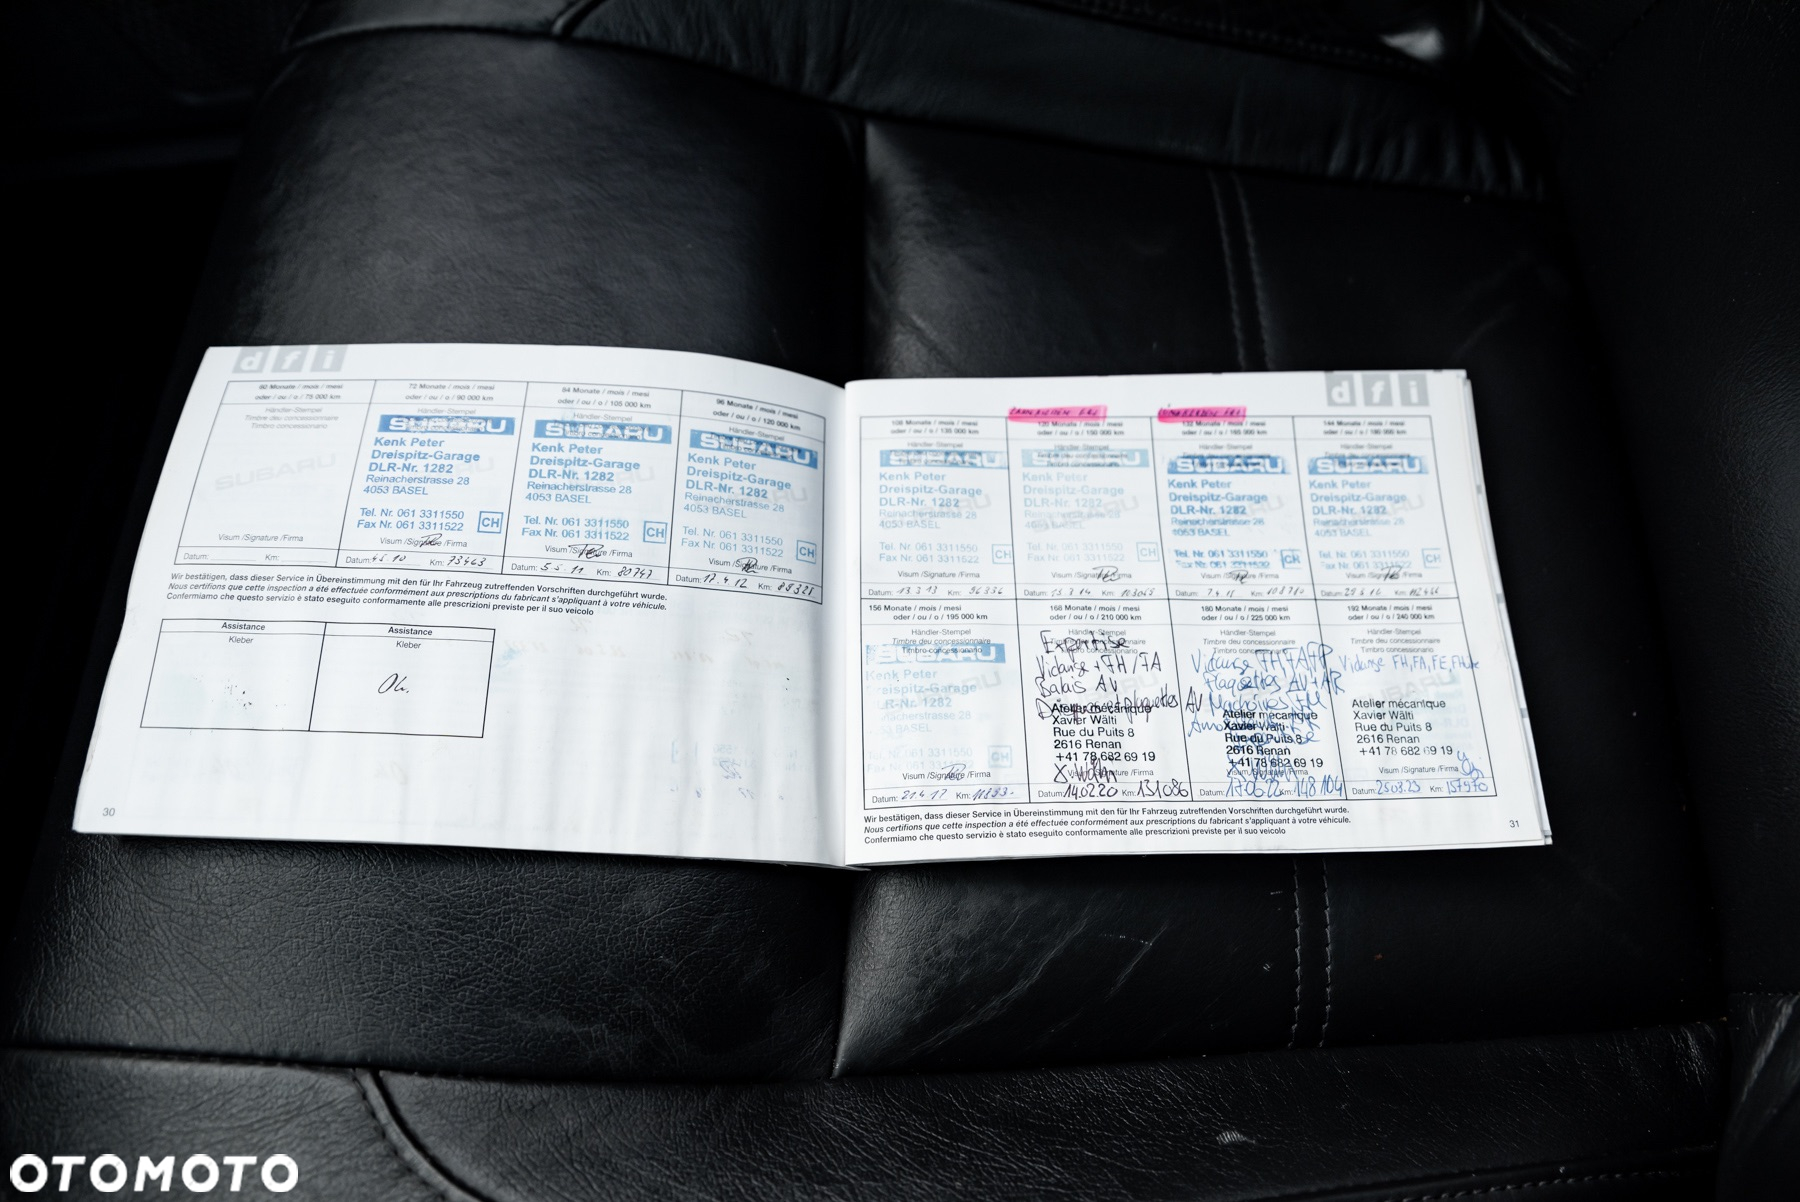 dfi
60 Monate / mois / mesi
oder / ou / o / 75 000 km
Händler-Stempel
Timbre du concessionnaire
Timbro concessionario
SUBARU
Visum /Signature /Firma
Datum: Km:
72 Monate / mois / mesi
oder / ou / o / 90 000 km
Händler-Stempel
SUBARU
Kenk Peter
Dreispitz-Garage
DLR-Nr. 1282
Reinacherstrasse 28
4053 BASEL
Tel. Nr. 061 3311550
Fax Nr. 061 3311522
CH
Visum /Signature /Firma
Datum: 4.5.10 Km: 73463
84 Monate / mois / mesi
oder / ou / o / 105 000 km
Händler-Stempel
SUBARU
Kenk Peter
Dreispitz-Garage
DLR-Nr. 1282
Reinacherstrasse 28
4053 BASEL
Tel. Nr. 061 3311550
Fax Nr. 061 3311522
CH
Visum /Signature /Firma
Datum: 5.5.11 Km: 80747
96 Monate / mois / mesi
oder / ou / o / 120 000 km
Händler-Stempel
SUBARU
Kenk Peter
Dreispitz-Garage
DLR-Nr. 1282
Reinacherstrasse 28
4053 BASEL
Tel. Nr. 061 3311550
Fax Nr. 061 3311522
CH
Visum /Signature /Firma
Datum: 17.4.12 Km: 88321
Wir bestätigen, dass dieser Service in Übereinstimmung mit den für Ihr Fahrzeug zutreffenden Vorschriften durchgeführt wurde.
Nous certifions que cette inspection a été effectuée conformément aux prescriptions du fabricant s'appliquant à votre véhicule.
Confermiamo che questo servizio è stato eseguito conformamente alle prescrizioni previste per il suo veicolo
Assistance
Kleber
Assistance
Kleber
30
dfi
108 Monate / mois / mesi
oder / ou / o / 135 000 km
SUBARU
Kenk Peter
Dreispitz-Garage
DLR-Nr. 1282
Reinacherstrasse 28
4053 BASEL
Tel. Nr. 061 3311550
Fax Nr. 061 3311522
CH
Visum /Signature /Firma
Datum: 13.3.13 Km: 96336
120 Monate / mois / mesi
oder / ou / o / 150 000 km
Kenk Peter
Dreispitz-Garage
DLR-Nr. 1282
Reinacherstrasse 28
4053 BASEL
Tel. Nr. 061 3311550
Fax Nr. 061 3311522
CH
Visum /Signature /Firma
Datum:
132 Monate / mois / mesi
oder / ou / o / 165 000 km
SUBARU
Kenk Peter
Dreispitz-Garage
DLR-Nr. 1282
Reinacherstrasse 28
4053 BASEL
Tel. Nr. 061 3311550
Fax Nr. 061 3311522
CH
Visum /Signature /Firma
Datum:
144 Monate / mois / mesi
oder / ou / o / 180 000 km
SUBARU
Kenk Peter
Dreispitz-Garage
DLR-Nr. 1282
Reinacherstrasse 28
4053 BASEL
Tel. Nr. 061 3311550
Fax Nr. 061 3311522
CH
Visum /Signature /Firma
Datum:
156 Monate / mois / mesi
oder / ou / o / 195 000 km
Händler-Stempel
Timbre du concessionnaire
Timbro concessionario
SUBARU
Kenk Peter
Dreispitz-Garage
DLR-Nr. 1282
Reinacherstrasse 28
4053 BASEL
Tel. Nr. 061 3311550
Fax Nr. 061 3311522
CH
Visum /Signature /Firma
Datum: 21.4.17 Km:
168 Monate / mois / mesi
oder / ou / o / 210 000 km
Expertise
Vidange + FH / FA
Balais AV
plaquettes AV
Atelier mécanique
Xavier Wälti
Rue du Puits 8
2616 Renan
+41 78 682 69 19
Visum /Signature /Firma
Datum: 14.02.20 Km: 131086
180 Monate / mois / mesi
oder / ou / o / 225 000 km
Händler-Stempel
Timbre du concessionnaire
Timbro concessionario
Vidange FH, FA, FP
Plaquettes AV + AR
Atelier mécanique
Xavier Wälti
Rue du Puits 8
2616 Renan
+41 78 682 69 19
Visum /Signature /Firma
Datum: 17.06.22 Km: 148104
192 Monate / mois / mesi
oder / ou / o / 240 000 km
Händler-Stempel
Timbre du concessionnaire
Timbro concessionario
Vidange FH, FA, FE,
Atelier mécanique
Xavier Wälti
Rue du Puits 8
2616 Renan
+41 78 682 69 19
Visum /Signature /Firma
Datum: 25.03.23 Km: 157970
Wir bestätigen, dass dieser Service in Übereinstimmung mit den für Ihr Fahrzeug zutreffenden Vorschriften durchgeführt wurde.
Nous certifions que cette inspection a été effectuée conformément aux prescriptions du fabricant s'appliquant à votre véhicule.
Confermiamo che questo servizio è stato eseguito conformamente alle prescrizioni previste per il suo veicolo
31
OTOMOTO